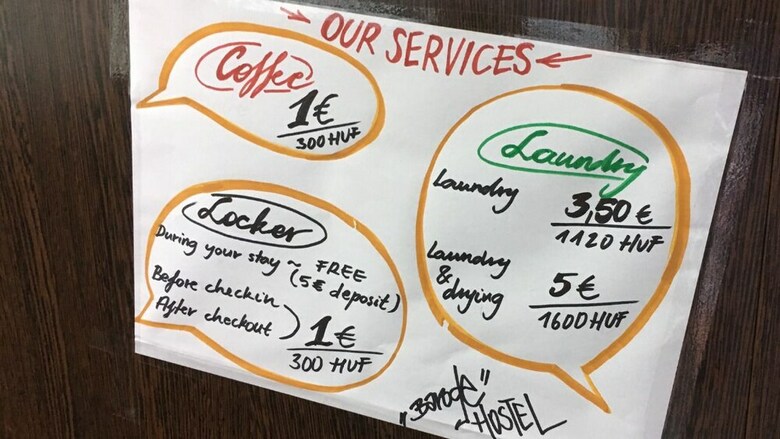 OUR SERVICES
Coffee
1€
300 HUF
Laundry
Laundry 3,50 €
1120 HUF
Laundry & drying 5€
1600 HUF
Locker
During your stay ~ FREE
(5€ deposit)
Before checkin
After checkout
1€
300 HUF
HOSTEL